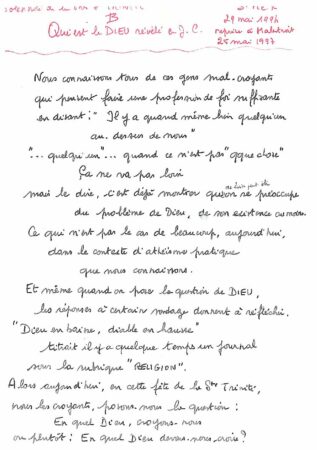 SOLENNITÉ de la STE TRINITÉ
B
Qui est le DIEU révélé en J.C.
29 mai 1994
reprise à Malestroit
25 mai 1997
Nous connaissons tous de ces gens mal-croyants
qui pensent faire une profession de foi suffisante
en disant : "Il y a quand même bien quelqu'un
au-dessus de nous"
"... quelqu'un"... quand ce n'est pas "qqque chose"
Ça ne va pas loin
mais le dire, c'est déjà montrer qu'on se préoccupe
du problème de Dieu, de son existence au moins.
Ce qui n'est pas le cas de beaucoup, aujourd'hui,
dans le contexte d'athéisme pratique
que nous connaissons.
Et même quand on pose la question de DIEU,
les réponses à certain sondage donnent à réfléchir.
"Dieu en baisse, diable en hausse"
titrait il y a quelque temps un journal
sous la rubrique "RELIGION".
Alors aujourd'hui, en cette fête de la Ste Trinité,
nous les croyants, posons-nous la question :
En quel Dieu, croyons-nous
ou plutôt : En quel Dieu devons-nous croire ?